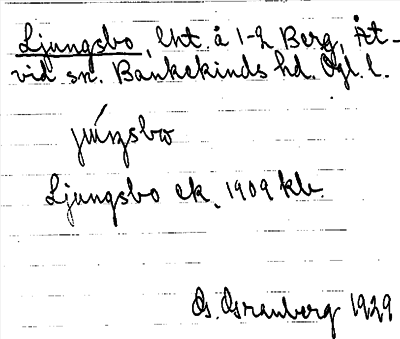 Ljungsbo, lht. å 1-2 Berg, Åt-
vid sn. Bankekinds hd. Ögl. l.
Ljungsbo ek. 1909 kbr
1929